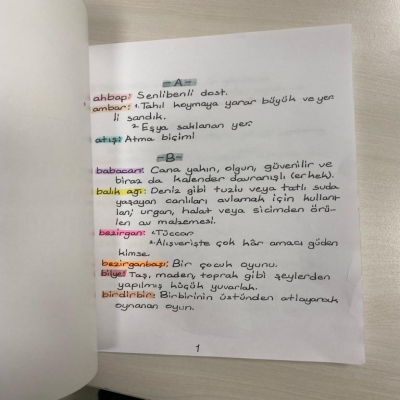 -A-
ahbap: Senlibenli dost.
ambar: 1. Tahıl koymaya yarar büyük ve yer
li sandık.
2. Eşya saklanan yer.
atış: Atma biçimi
-B-
babacan: Cana yakın, olgun, güvenilir ve
biraz da kalender davranışlı (erkek).
balık ağı: Deniz gibi tuzlu veya tatlı suda
yaşayan canlıları avlamak için kullanı
lan; urgan, halat veya sicimden örü-
len av malzemesi.
bezirgan: 1. Tüccar
2. Alışverişte çok kâr amacı güden
kimse.
bezirganbaşı: Bir çocuk oyunu.
bilye: Taş, maden, toprak gibi şeylerden
yapılmış küçük yuvarlak.
birdirbir: Birbirinin üstünden atlayarak
oynanan oyun.
1